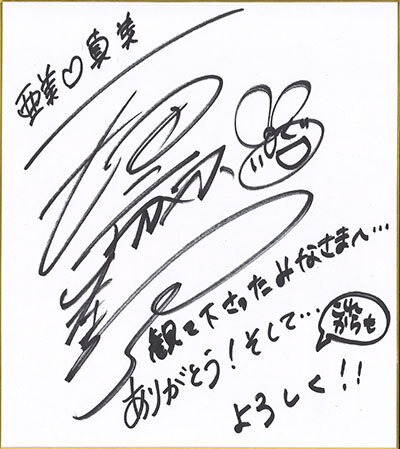 亜美♡真美
観て下さったみなさまへ…
ありがとう!そして…
これ
からも
よろしく!!